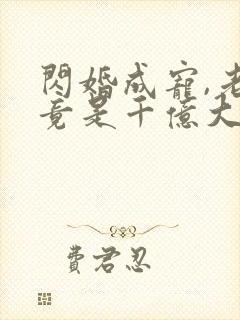 閃婚成寵,老
竟是千億大
費君忍